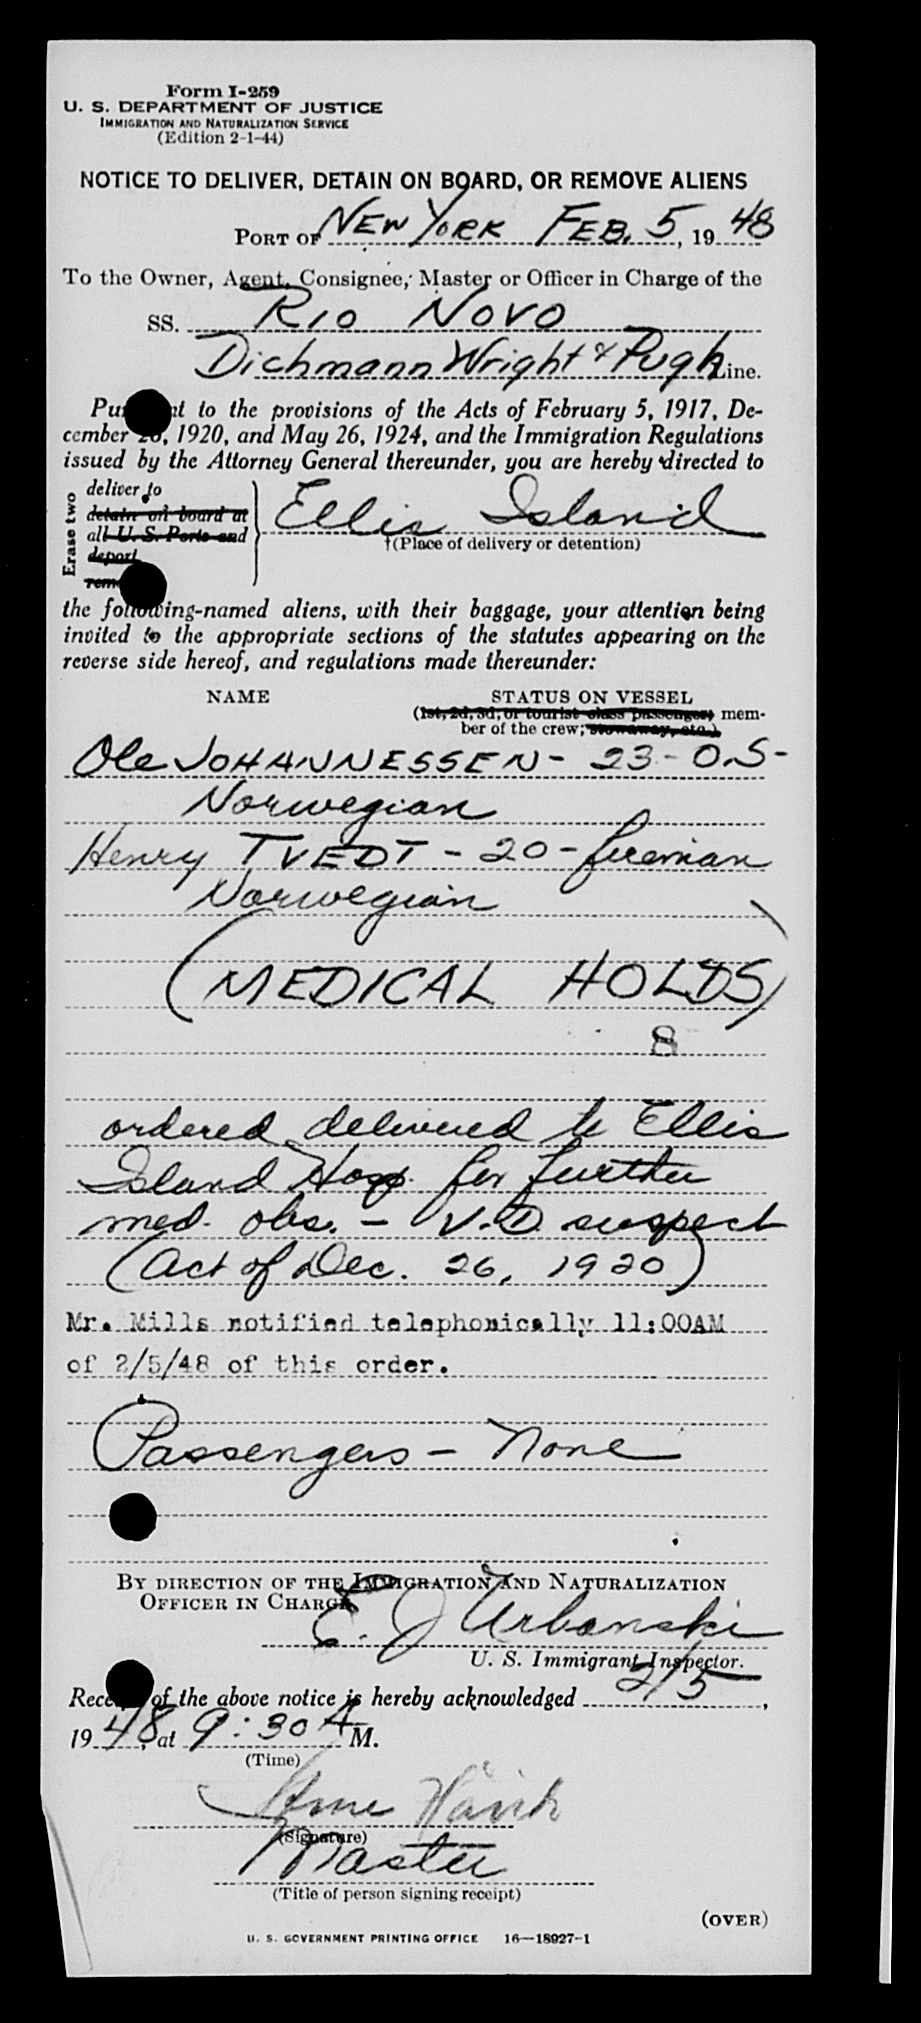 Form I-259
U. S. DEPARTMENT OF JUSTICE
IMMIGRATION AND NATURALIZATION SERVICE
(Edition 2-1-44)
NOTICE TO DELIVER, DETAIN ON BOARD, OR REMOVE ALIENS
PORT OF NEW YORK FEB. 5, 1948
To the Owner, Agent, Consignee, Master or Officer in Charge of the
SS. RIO NOVO
Dichmann Wright & Pugh Line.
to the provisions of the Acts of February 5, 1917, De-
cember 26, 1920, and May 26, 1924, and the Immigration Regulations
issued by the Attorney General thereunder, you are hereby directed to
Erase two
deliver to
detain on board at
all U. S. Ports and
deport
Ellis Island
†(Place of delivery or detention)
the following-named aliens, with their baggage, your attention being
invited to the appropriate sections of the statutes appearing on the
reverse side hereof, and regulations made thereunder:
NAME STATUS ON VESSEL
(1st, 2d, 3d, or tourist class passenger; mem-
ber of the crew; stowaway, etc.)
Ole JOHANNESSEN - 23 - O.S -
Norwegian
Henry TVEDT - 20 - fireman
Norwegian
(MEDICAL HOLDS)
8
ordered delivered to Ellis
Island Hosp. for further
med. obs. - V.D. suspect
(Act of Dec. 26, 1920)
Mr. Mills notified telephonically 11:00AM
of 2/5/48 of this order.
Passengers - None
BY DIRECTION OF THE IMMIGRATION AND NATURALIZATION
OFFICER IN CHARGE
E. J Urbanski
U. S. Immigrant Inspector.
of the above notice is hereby acknowledged 2/5,
1948, at 9:30 A M.
(Time)
Arne
(Signature)
Master
(Title of person signing receipt)
(OVER)
U. S. GOVERNMENT PRINTING OFFICE 16—18927-1